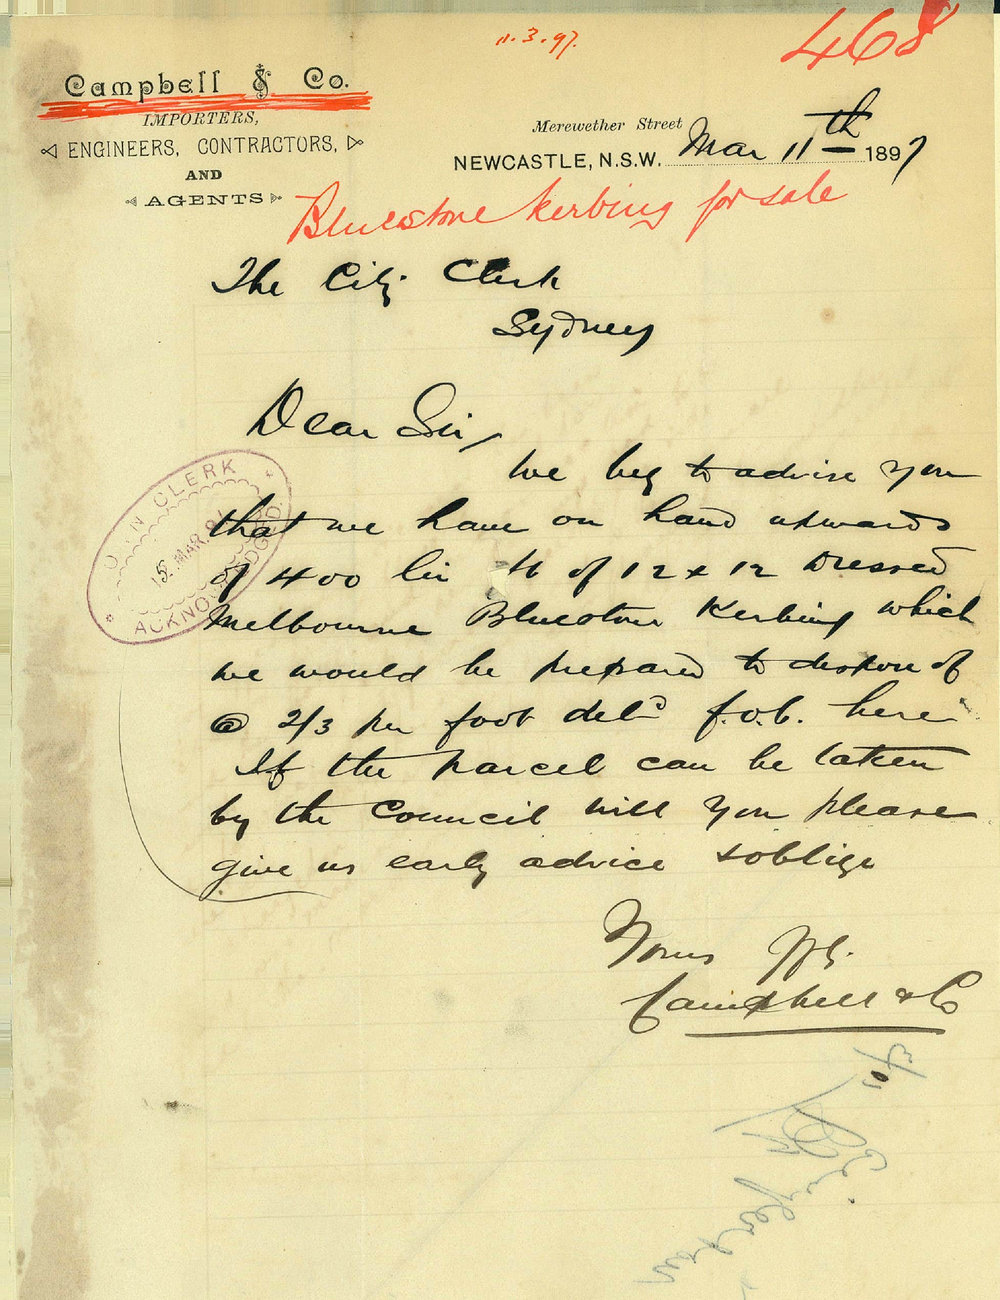 11.3.97.
468
Campbell & Co.
IMPORTERS,
ENGINEERS, CONTRACTORS,
AND
AGENTS
Merewether Street
NEWCASTLE, N.S.W. Mar 11th 1897
Bluestone kerbing for sale
The City Clerk
Sydney
Dear Sir,
We beg to advise you
that we have on hand upwards
of 400 lin ft of 12 x 12 Dressed
Melbourne Bluestone Kerbing which
we would be prepared to dispose of
@ 2/3 per foot deld f.o.b. here
If the parcel can be taken
by the Council will you please
give us early advice & oblige
Yours
Campbell & Co
CLERK
15 MAR. 97
ACKNOWLEDGED.